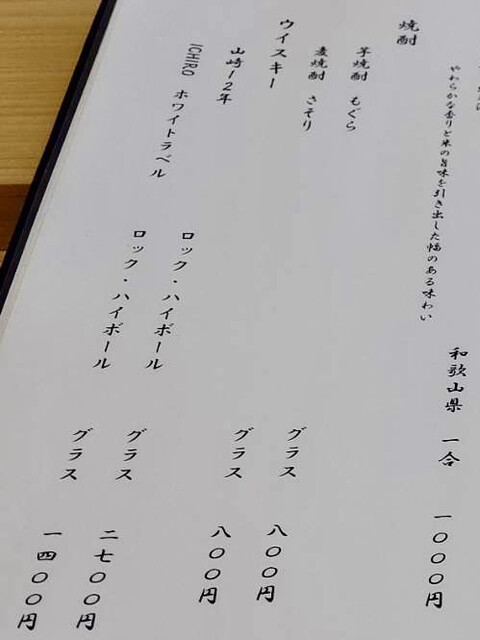 やわらかな香りと米の旨味を引き出した幅のある味わい
和歌山県 一合 一〇〇〇円
焼酎
芋焼酎 もぐら グラス 八〇〇円
麦焼酎 さそり グラス 八〇〇円
ウイスキー
山崎12年 ロック・ハイボール グラス 二七〇〇円
ICHIRO ホワイトラベル ロック・ハイボール グラス 一四〇〇円